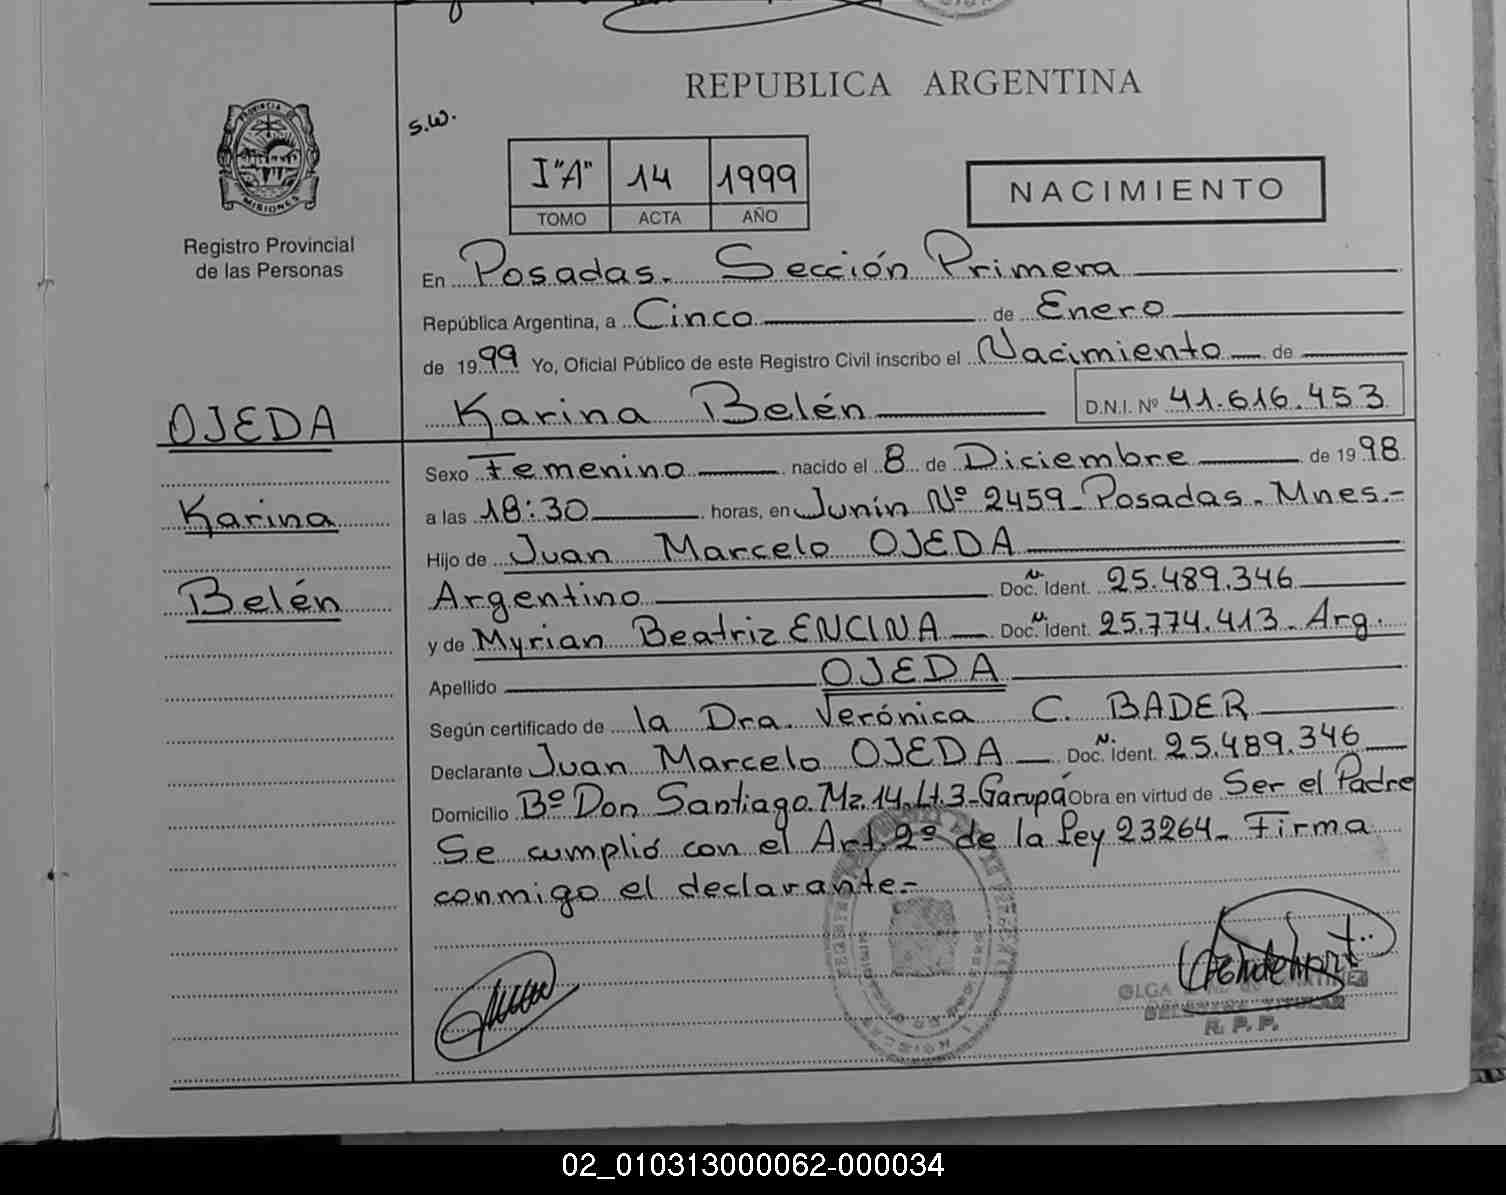 REPUBLICA ARGENTINA
S.W.
PROVINCIA DE
MISIONES
Registro Provincial
de las Personas
I"A" 14 1999
TOMO ACTA AÑO
NACIMIENTO
En Posadas. Sección Primera
República Argentina, a Cinco de Enero
de 1999 Yo, Oficial Público de este Registro Civil inscribo el Nacimiento de
Karina Belén D.N.I. Nº 41.616.453
OJEDA
Karina
Belén
Sexo Femenino nacido el 8 de Diciembre de 1998
a las 18:30 horas, en Junín Nº 2459- Posadas. Mnes.-
Hijo de Juan Marcelo OJEDA
Argentino Doc. N. Ident. 25.489.346
y de Myrian Beatriz ENCINA Doc. N. Ident. 25.774.413- Arg.
Apellido OJEDA
Según certificado de la Dra. Verónica C. BADER
Declarante Juan Marcelo OJEDA Doc. N. Ident. 25.489.346
Domicilio Bº Don Santiago. Mz. 14. Lt. 3- Garupá Obra en virtud de Ser el Padre
Se cumplió con el Art. 2º de la Ley 23264- Firma
conmigo el declarante.-
OLGA
TITULAR
R. P. P.
02_010313000062-000034